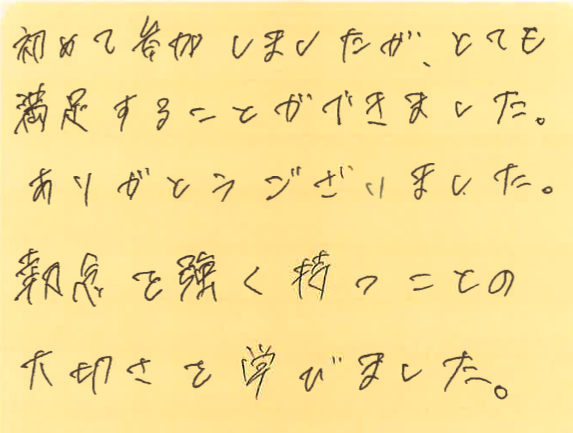 初めて参加しましたが、とても
満足することができました。
ありがとうございました。
執念を強く持つことの
大切さを学びました。